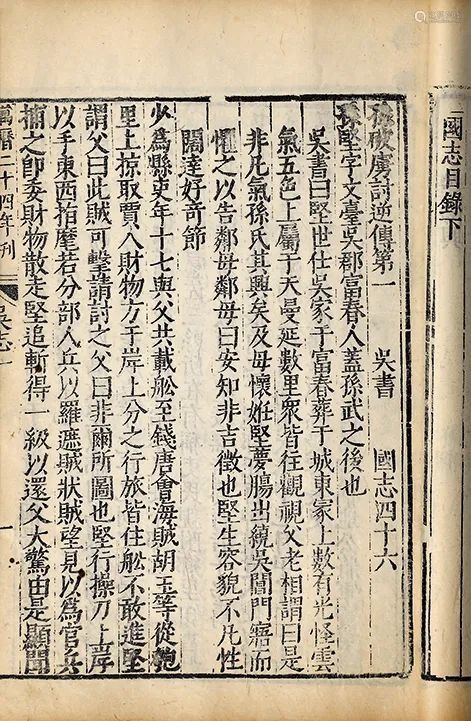 國志目錄下
孫破虜討逆傳第一 吳書 國志四十六
孫堅字文臺吳郡富春人蓋孫武之後也
吳書曰堅世仕吳家于富春葬于城東冢上數有光怪雲
氣五色上屬于天曼延數里衆皆往觀視父老相謂曰是
非凡氣孫氏其興矣及母懷姙堅夢腸出繞吳閶門寤而
懼之以告鄰母鄰母曰安知非吉徵也堅生容貌不凡性
闊達好奇節
少爲縣吏年十七與父共載船至錢唐會海賊胡玉等從匏
里上掠取賈人財物方于岸上分之行旅皆住船不敢進堅
謂父曰此賊可擊請討之父曰非爾所圖也堅行操刀上岸
以手東西指麾若分部人兵以羅遮賊狀賊望見以爲官兵
捕之即委財物散走堅追斬得一級以還父大驚由是顯聞
萬曆二十四年刊 吳志一 一